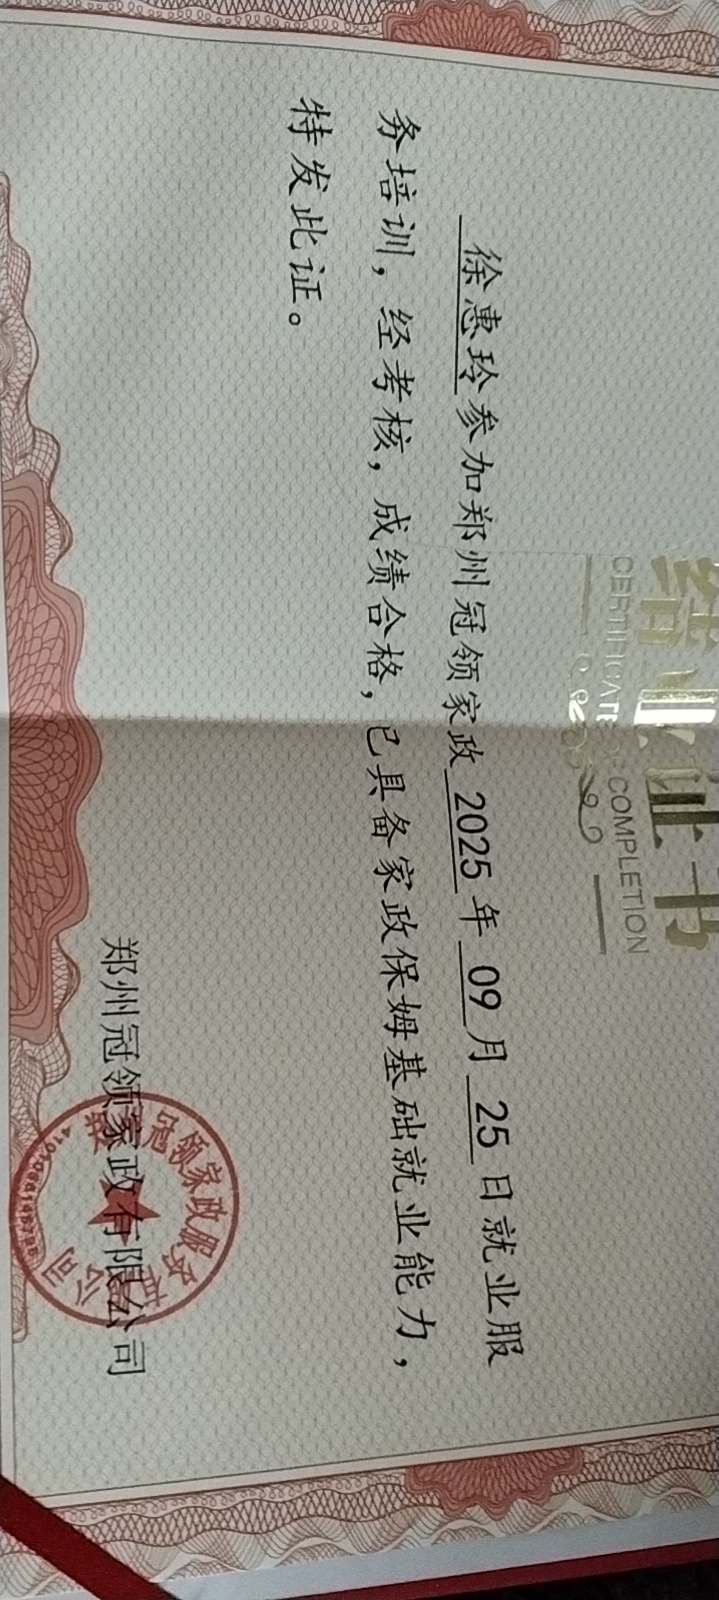 结业证书
CERTIFICATE COMPLETION
徐惠玲参加郑州冠领家政 2025 年 09 月 25 日就业服
务培训，经考核，成绩合格，已具备家政保姆基础就业能力，
特发此证。
郑州冠领家政有限公司
冠领家政服务
公司